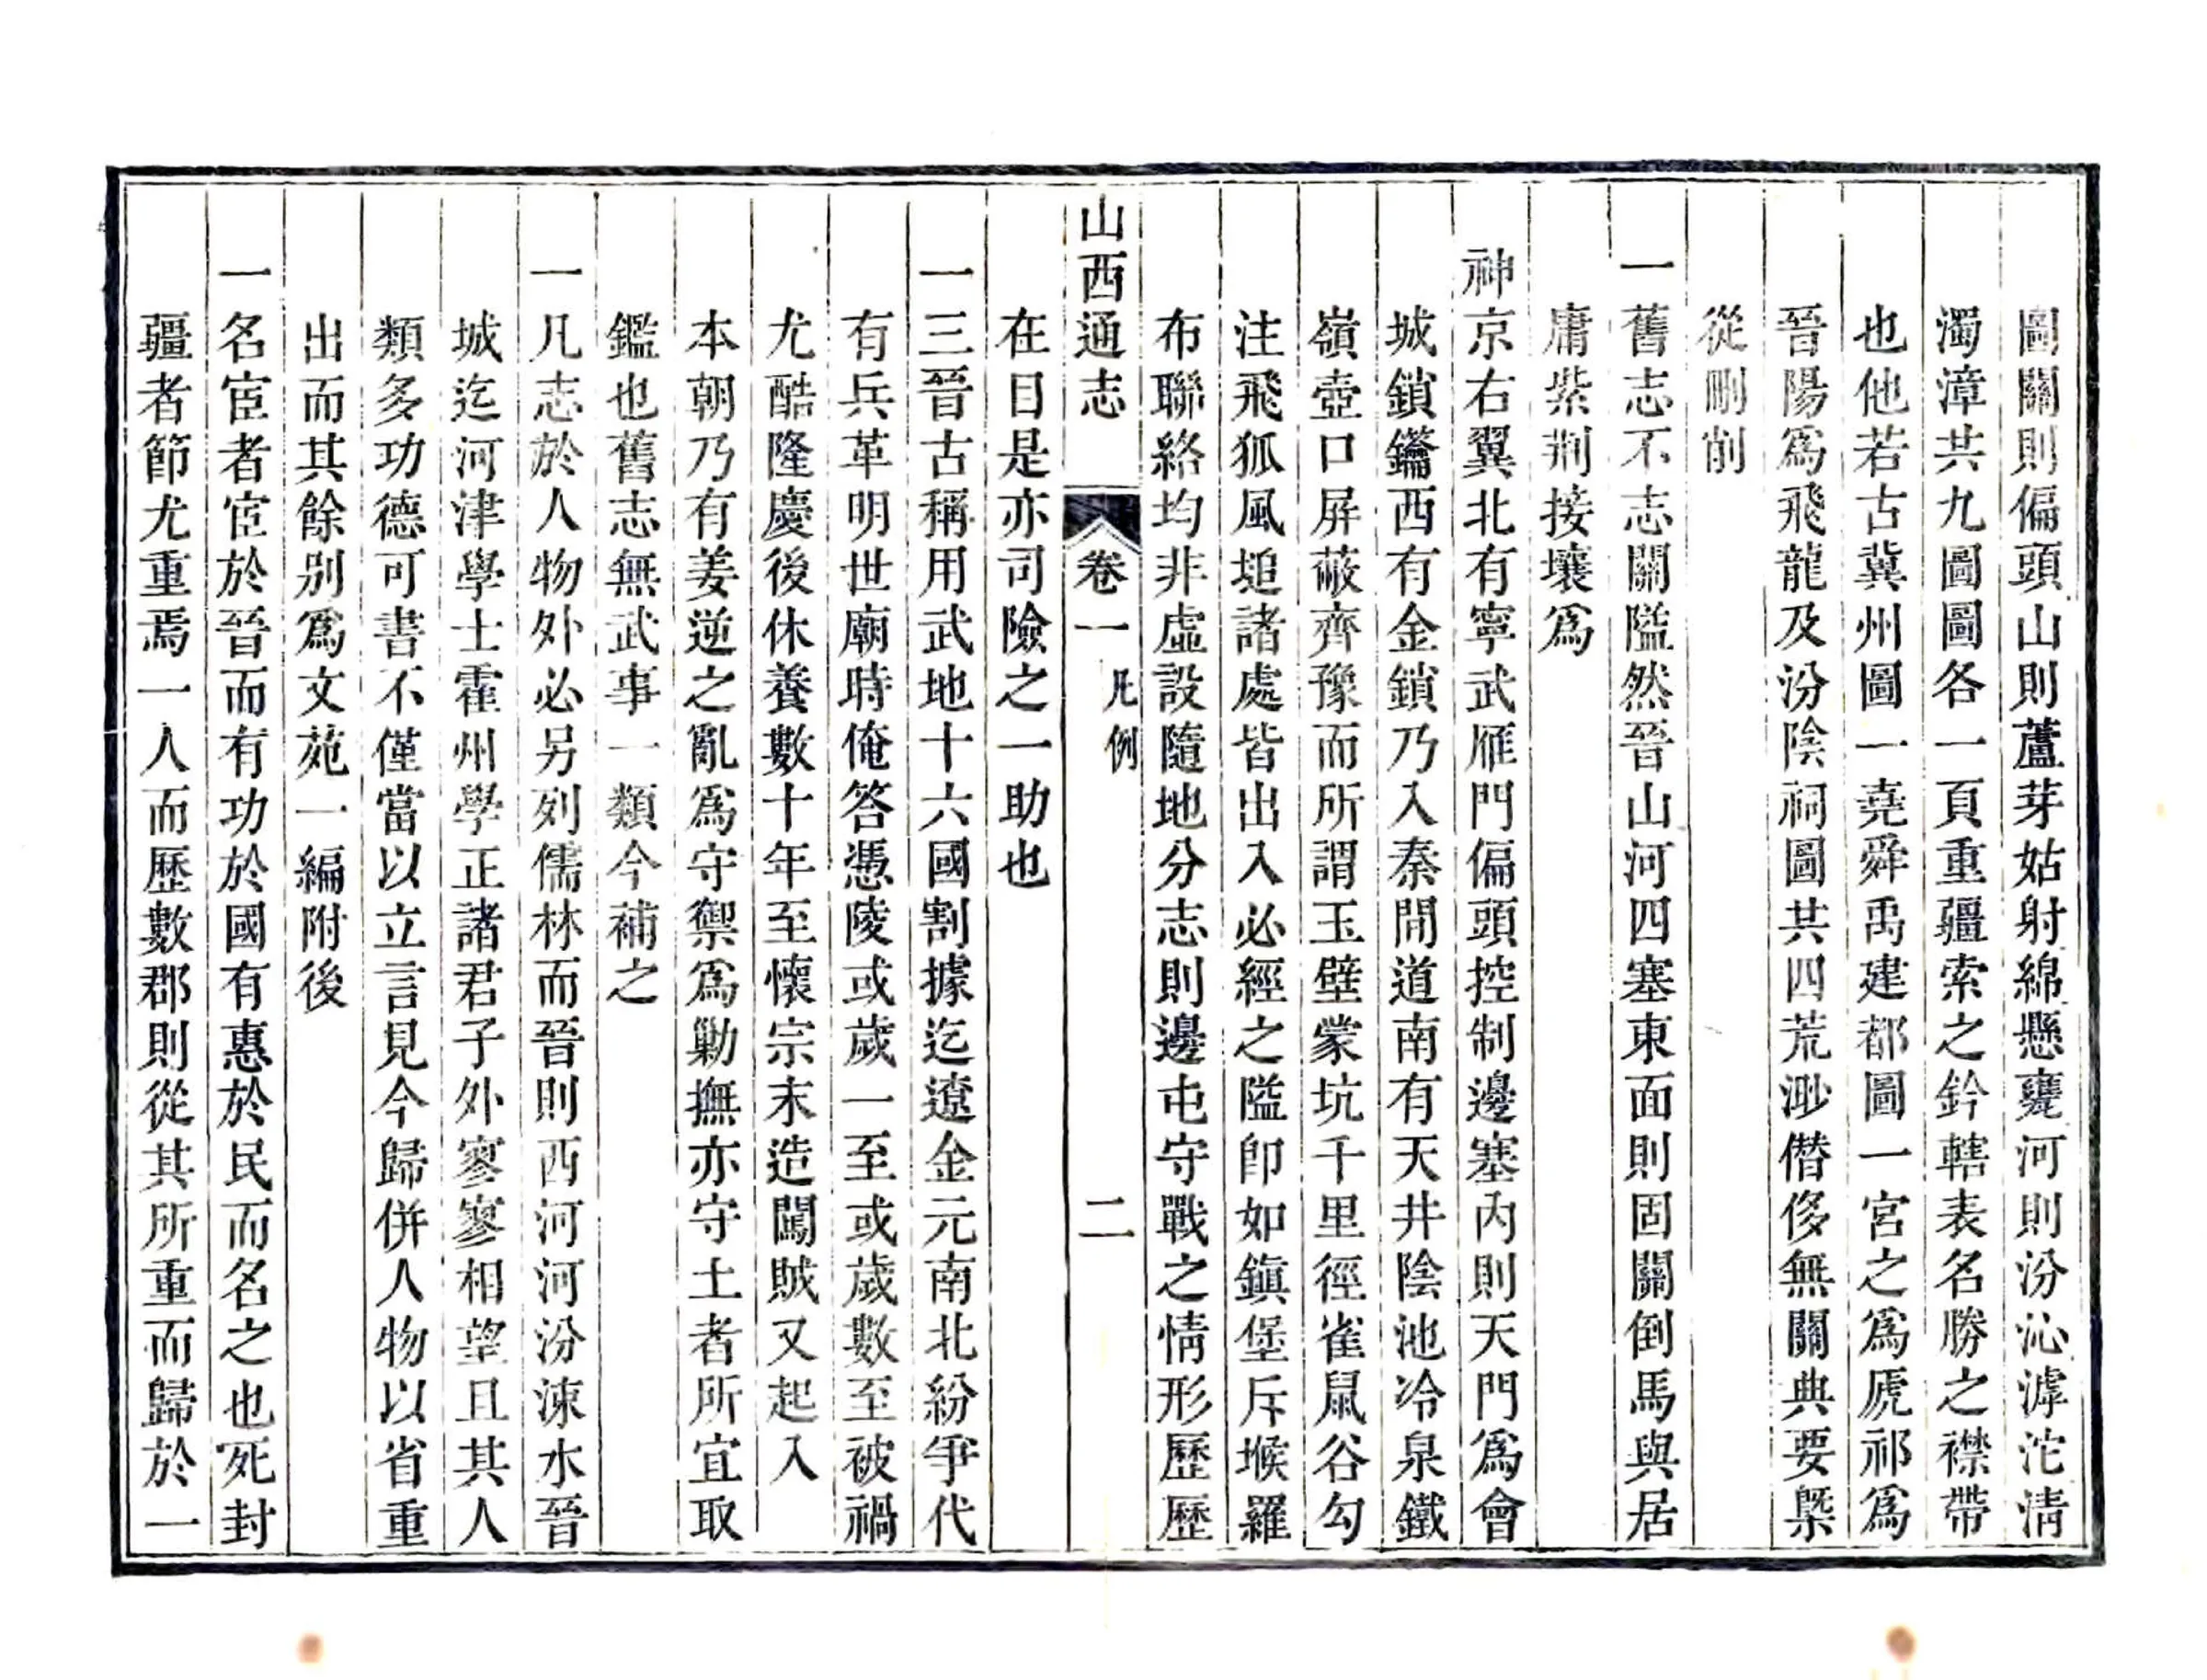 圖關則偏頭山則蘆芽姑射綿懸甕河則汾沁滹沱淸
濁漳共九圖圖各一頁重疆索之鈐轄表名勝之襟帶
也他若古冀州圖一堯舜禹建都圖一宮之爲虒祁爲
晉陽爲飛龍及汾陰祠圖其四荒渺僭侈無關典要槩
從刪削
一舊志不志關隘然晉山河四塞東面則固關倒馬與居
庸紫荆接壤爲
神京右翼北有寧武雁門偏頭控制邊塞內則天門爲會
城鎖鑰西有金鎖乃入秦間道南有天井陰池冷泉鐵
嶺壺口屛蔽齊豫而所謂玉壁蒙坑千里徑雀鼠谷勾
注飛狐風埳諸處皆出入必經之隘卽如鎭堡斥堠羅
布聯絡均非虛設隨地分志則邊屯守戰之情形歷歷
山西通志 卷一 凡例 二
在目是亦司險之一助也
一三晉古稱用武地十六國割據迄遼金元南北紛爭代
有兵革明世廟時俺答憑陵或歲一至或歲數至被禍
尤酷隆慶後休養數十年至懷宗末造闖賊又起入
本朝乃有姜逆之亂爲守禦爲勦撫亦守土者所宜取
鑑也舊志無武事一類今補之
一凡志於人物外必另列儒林而晉則西河河汾涑水晉
城迄河津學士霍州學正諸君子外寥寥相望且其人
類多功德可書不僅當以立言見今歸併人物以省重
出而其餘別爲文苑一編附後
一名宦者宦於晉而有功於國有惠於民而名之也死封
疆者節尤重焉一人而歷數郡則從其所重而歸於一